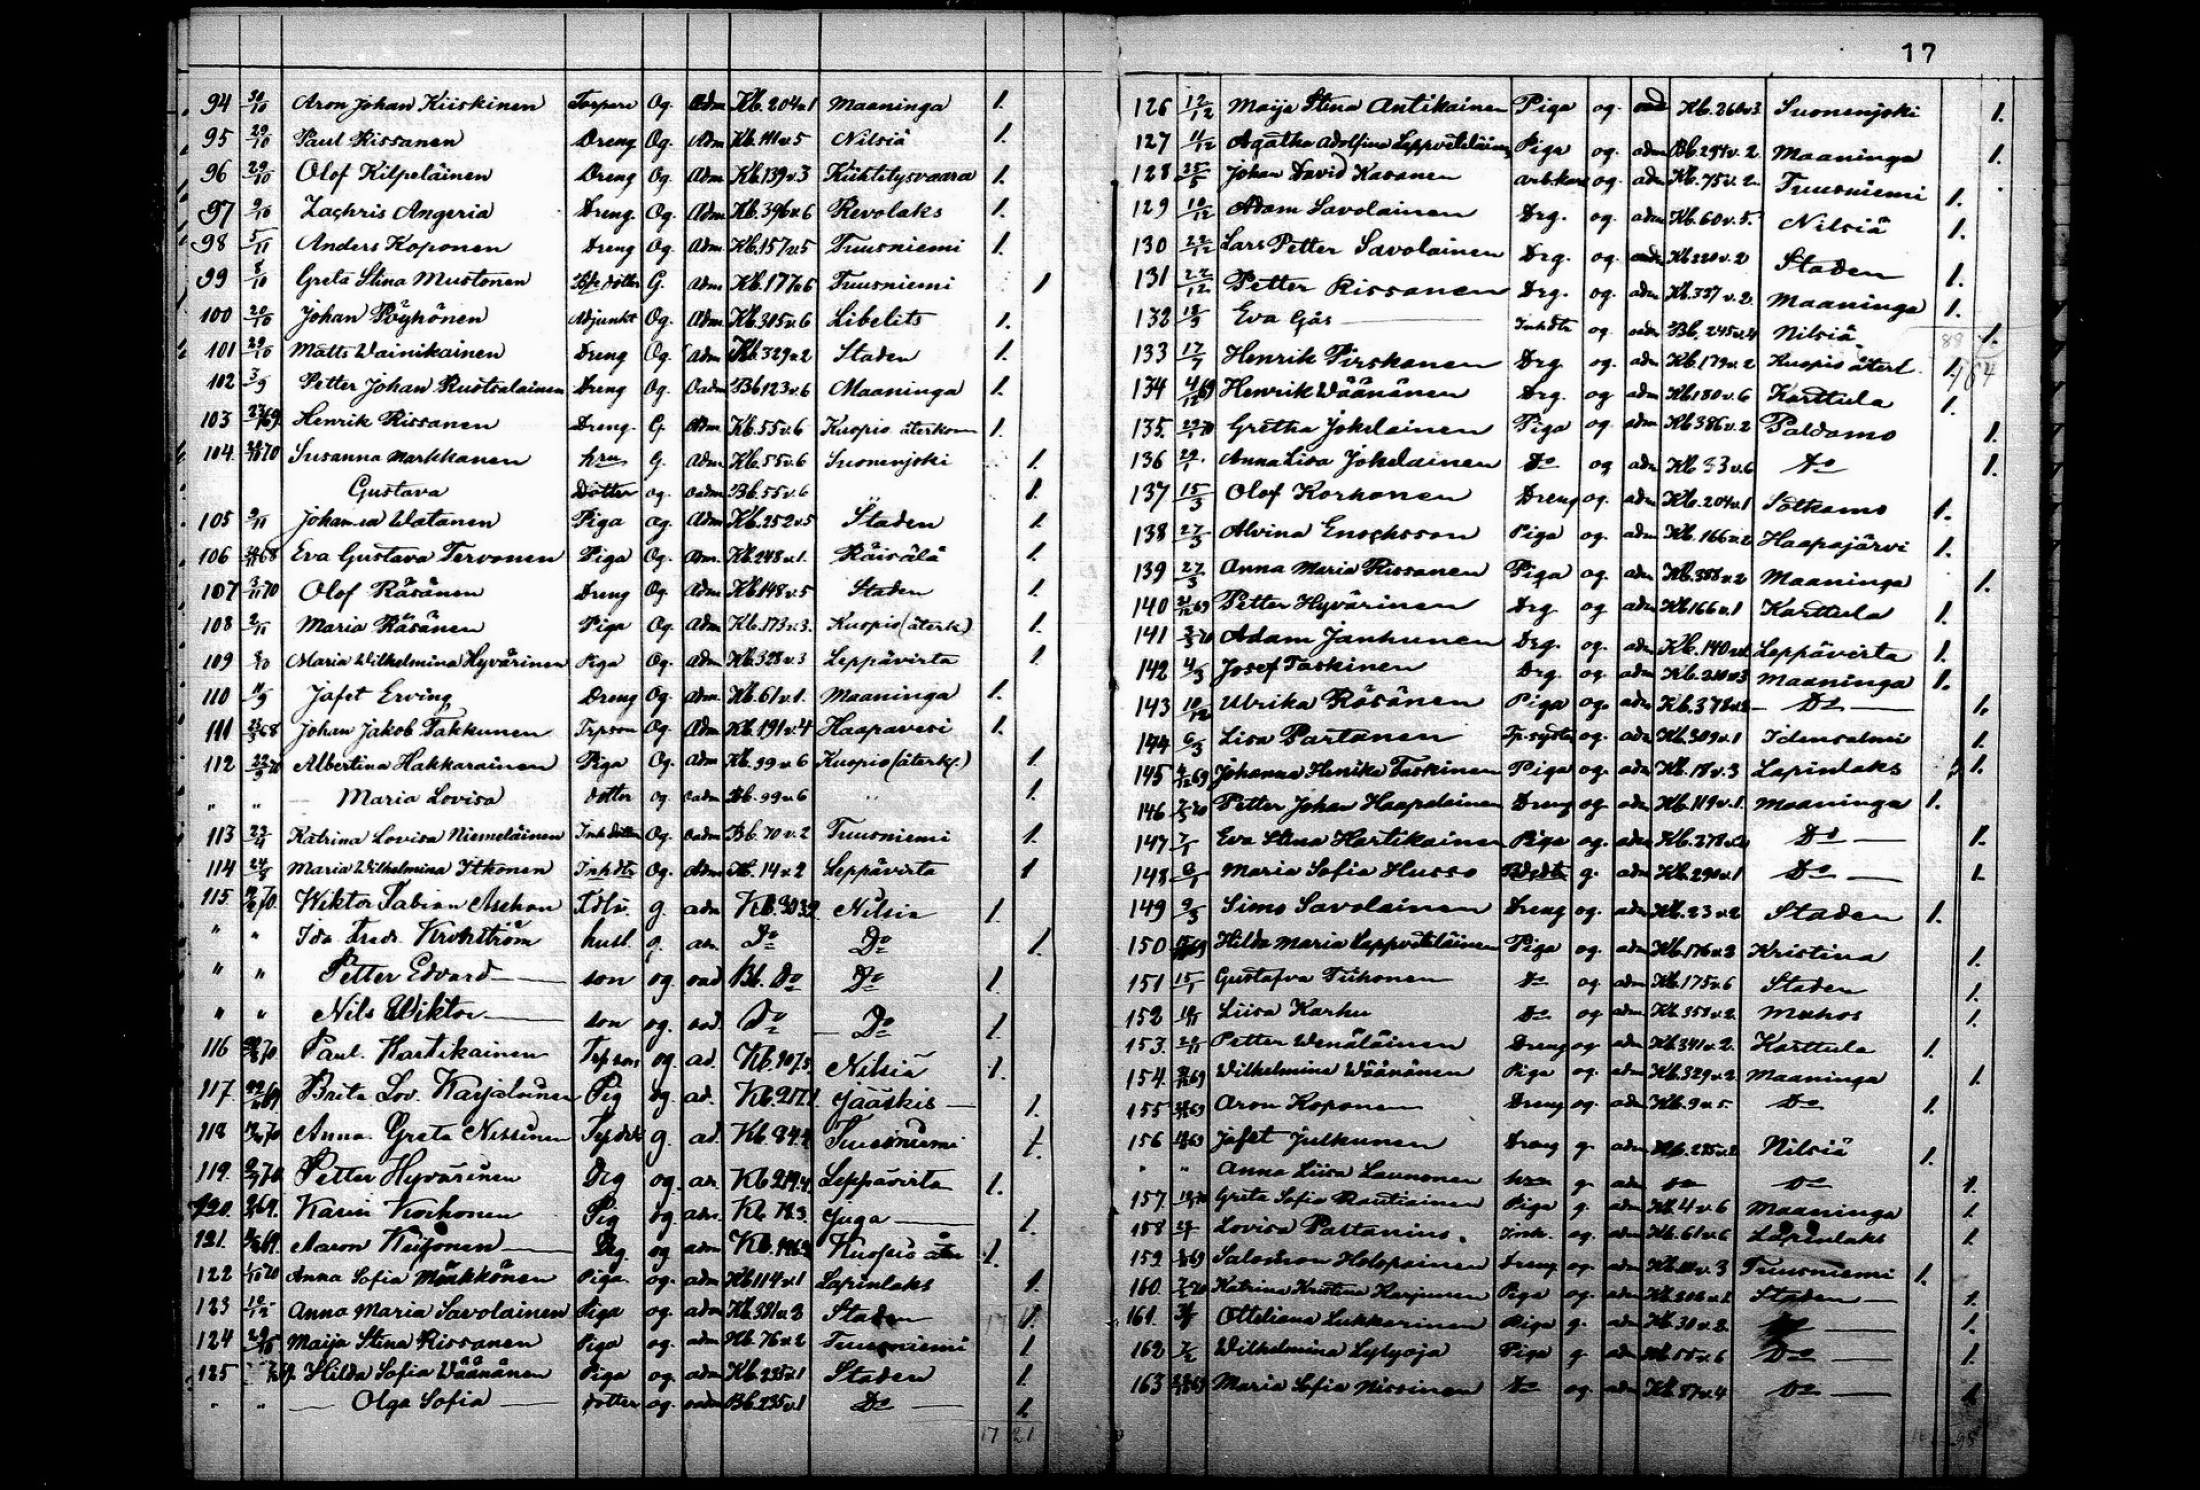 17
94 30/10 Aron Johan Kiiskinen Torpare Og. Adm Kb. 204 v. 1 Maaninga 1.
95 29/10 Paul Rissanen Dreng Og. Adm Kb. 111 v. 5 Nilsiä 1.
96 29/10 Olof Kilpeläinen Dreng Og. Adm Kb. 139 v. 3 Kiihtelysvaara 1.
97 9/10 Zachris Angeria Dreng. Og. Adm Kb. 396 v. 6 Revolaks 1.
98 5/11 Anders Koponen Dreng Og. Adm Kb. 157 v. 5 Tuusniemi 1.
99 8/10 Greta Stina Mustonen dotter G. Adm Kb. 177 v. 6 Tuusniemi 1
100 20/10 Johan Pöyhönen Adjunkt Og. Adm. Kb. 305 v. 6 Libelits 1.
101 29/10 Matts Wainikainen Dreng Og. Adm Kb. 329 v. 2 Staden 1.
102 3/9 Petter Johan Ruotsalainen Dreng Og. Oadm Bb 123 v. 6 Maaninga 1.
103 Henrik Rissanen Dreng. G. Adm. Kb. 55 v. 6 Kuopio återkom 1.
104. Susanna Markkanen hru G. Adm. Kb. 55 v. 6 Suonenjoki 1.
Gustava Dotter og. Oadm Bb. 55 v. 6 1.
105 9/11 Johanna Watanen Piga og. Adm. Kb. 252 v. 5 Staden 1.
106 Eva Gustava Tervonen Piga Og. Adm. Kb. 248 v. 1. Räisälä 1.
107 3/11 70 Olof Räsänen Dreng Og. Adm Kb. 148 v. 5 Staden 1.
108 2/11 Maria Räsänen Piga Og. Adm Kb. 173 v. 3. Kuopio (återk.) 1.
109 8/10 Maria Wilhelmina Hyvärinen Piga Og. Adm Kb. 328 v. 3 Leppävirta 1.
110 Jafet Erving Dreng Og. adm. Kb. 61 v. 1. Maaninga 1.
111 Johan Jakob Takkunen Trpson Og. Adm. Kb. 191 v. 4 Haapavesi 1.
112 Albertina Hakkarainen Piga Og. Adm Kb. 99 v. 6 Kuopio (återk.) 1.
" " — Maria Lovisa dotter og. oadm Bb. 99 v. 6 " 1.
113 23/4 Katrina Lovisa Niemeläinen Inh. dotter Og. oadm Bb. 70 v. 2 Tuusniemi 1.
114 Maria Wilhelmina Itkonen Inh dtr Og. Adm Kb. 14 v. 2 Leppävirta 1
115 Wiktor Fabian Aschan g. adm Kb. 303 Nilsiä 1.
" " Ida Fredr. Krohström hust. g. ad. Do Do 1.
" " Petter Edvard — son og. oad Bb. Do Do 1.
" " Nils Wiktor — son og. oad. Do Do 1.
116 Paul. Hartikainen Trpson og. ad. Kb. 107.5 Nilsiä 1.
117. Brita Lov. Karjalainen Pig og. ad. Kb. Jääskis — 1.
118 Anna Greta Nissinen g. ad. Kb. 84.4 Tuusniemi 1.
119. Petter Hyvärinen Drg og. ad. Kb 219.4 Leppävirta 1.
120. Karin Korhonen Pig og. adm. Kb. 78.3. Juga — 1.
121. Aaron — Drg. og adm Kb. Kuopio åter 1.
122 Anna Sofia Miinkkönen Piga og. adm Kb 114 v. 1 Lapinlaks 1.
123 Anna Maria Savolainen Piga og. adm Kb. 381 v. 3 Staden 1.
124 Maija Stina Rissanen Piga og. adm Kb. 76 v. 2 Tuusniemi 1
125 Hilda Sofia Wäänänen Piga og. adm Kb. 235 v. 1 Staden 1.
" " — Olga Sofia — dotter og. oadm Bb. 235 v. 1 Do — 1.
17 21
126 12/12 Maija Stina Antikainen Piga og. Kb. 260 v. 3 Suonenjoki 1.
127 11/12 Agatha Adolfina Leppveteläinen Piga og. adm Bb. 294 v. 2. Maaninga 1.
128 25/5 Johan David Kasanen arb.karl og. adm Kb. 75 v. 2. Tuusniemi 1.
129 10/12 Adam Savolainen Drg. og. adm Kb. 60 v. 5. Nilsiä 1.
130 22/12 Lars Petter Savolainen Drg. og. adm Kb 220 v. 2 Staden 1.
131 22/12 Petter Rissanen Drg. og. adm Kb. 337 v. 2. Maaninga 1.
132 18/3 Eva Gås — Inh dtr og. Bb. 245 v. 4 Nilsiä 1.
133 17/7 Henrik Pirskanen Drg. og. adm Kb. 179 v. 2 Kuopio återk. 1.
134 4/12 69 Henrik Wäänänen Drg. og adm Kb 180 v. 6 Karttula 1.
135. Gretha Jokelainen Piga og. adm Kb 386 v. 2 Paldamo 1.
136 Anna Lisa Jokelainen Do og adm Kb 33 v. 6 Do 1.
137 15/3 Olof Korhonen Dreng og. adm Kb. 204 v. 1 Sotkamo 1.
138 27/3 Alvina Enochsson Piga og. adm Kb. 166 v. 2 Haapajärvi 1.
139 27/3 Anna Maria Rissanen Piga og. adm Kb. 388 v. 2 Maaninga 1.
140 Petter Hyvärinen Drg og adm Kb 166 v. 1 Karttula 1.
141 Adam Janhunen Drg. og. adm Kb. 140 Leppävirta 1.
142 4/3 Josef Taskinen Drg. og. adm Kb. 210 v. 3 Maaninga 1.
143 10/12 Ulrika Räsänen Piga og. adm Kb. 378 — Do — 1.
144 6/3 Lisa Partanen og. adm Kb. 309 v. 1 Idensalmi 1.
145 Johanna Henrika Taskinen Piga og. adm Kb. 18 v. 3 Lapinlaks 1.
146 Petter Johan Haapalainen Dreng og. adm Kb. 119 v. 1. Maaninga 1.
147 7/1 Eva Stina Hartikainen Piga og. adm Kb. 278 Do — 1.
148 Maria Sofia Husso g. adm Kb. 290 v. 1 Do — 1.
149 9/3 Simo Savolainen Dreng og. adm Kb. 23 v. 2 Staden 1.
150 Hilda Maria Lappveteläinen Piga og. adm Kb. 176 v. 3 Kristina 1.
151 15/1 Gustafva Tiihonen Do og adm Kb. 175 v. 6 Staden 1.
152 Liisa Karhu Do og adm Kb. 351 v. 2. Muhos 1.
153. Petter Wenäläinen Dreng og adm Kb. 341 v. 2. Karttula 1.
154. Wilhelmina Wäänänen Piga og. adm Kb. 329 v. 2 Maaninga 1.
155 Aron Koponen Dreng og. adm Kb. 9 v. 5. Do 1.
156 Jafet Julkunen Dreng g. adm Kb. 235 Nilsiä 1.
" " Anna Liisa Launonen hru g. adm Do Do 1.
157. Greta Sofia Rautiainen Piga g. adm Kb. 4 v. 6 Maaninga 1.
158 Lovisa Partanin Inh. og. adm Kb. 61 v. 6 Lapinlaks 1.
159 Salomon Holopainen Dreng og. adm Kb. v. 3 Tuusniemi 1.
160. Katrina Kristina Karjunen Piga og. adm Kb. Staden — 1.
161. Otteliana Lukkarinen Piga g. adm Kb. 30 v. 2. Do — 1.
162 7/2 Wilhelmina Lylyoja Piga g adm Kb. 55 v. 6 Do — 1.
163 Maria Sofia Nissinen Do og adm Kb. 87 v. 4 Do — 1.